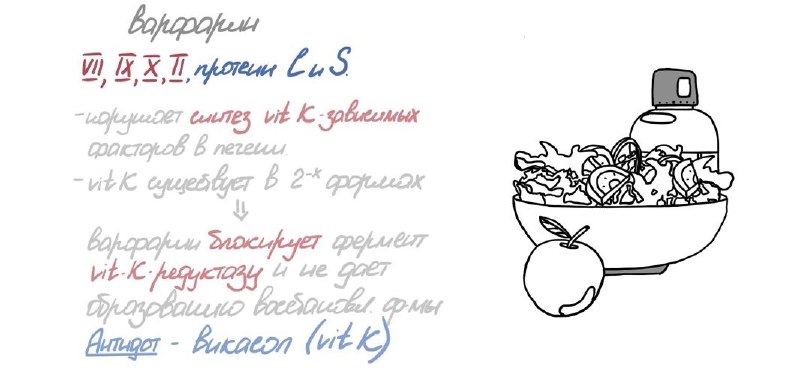 варфарин
VII, IX, X, II, протеин C и S.
-нарушает синтез vit K-зависимых
факторов в печени.
-vit K существует в 2-х формах
⇓
варфарин блокирует фермент
vit-K-редуктазу и не даёт
образованию восстановл. ф-мы
Антидот - Викасол (vit K)